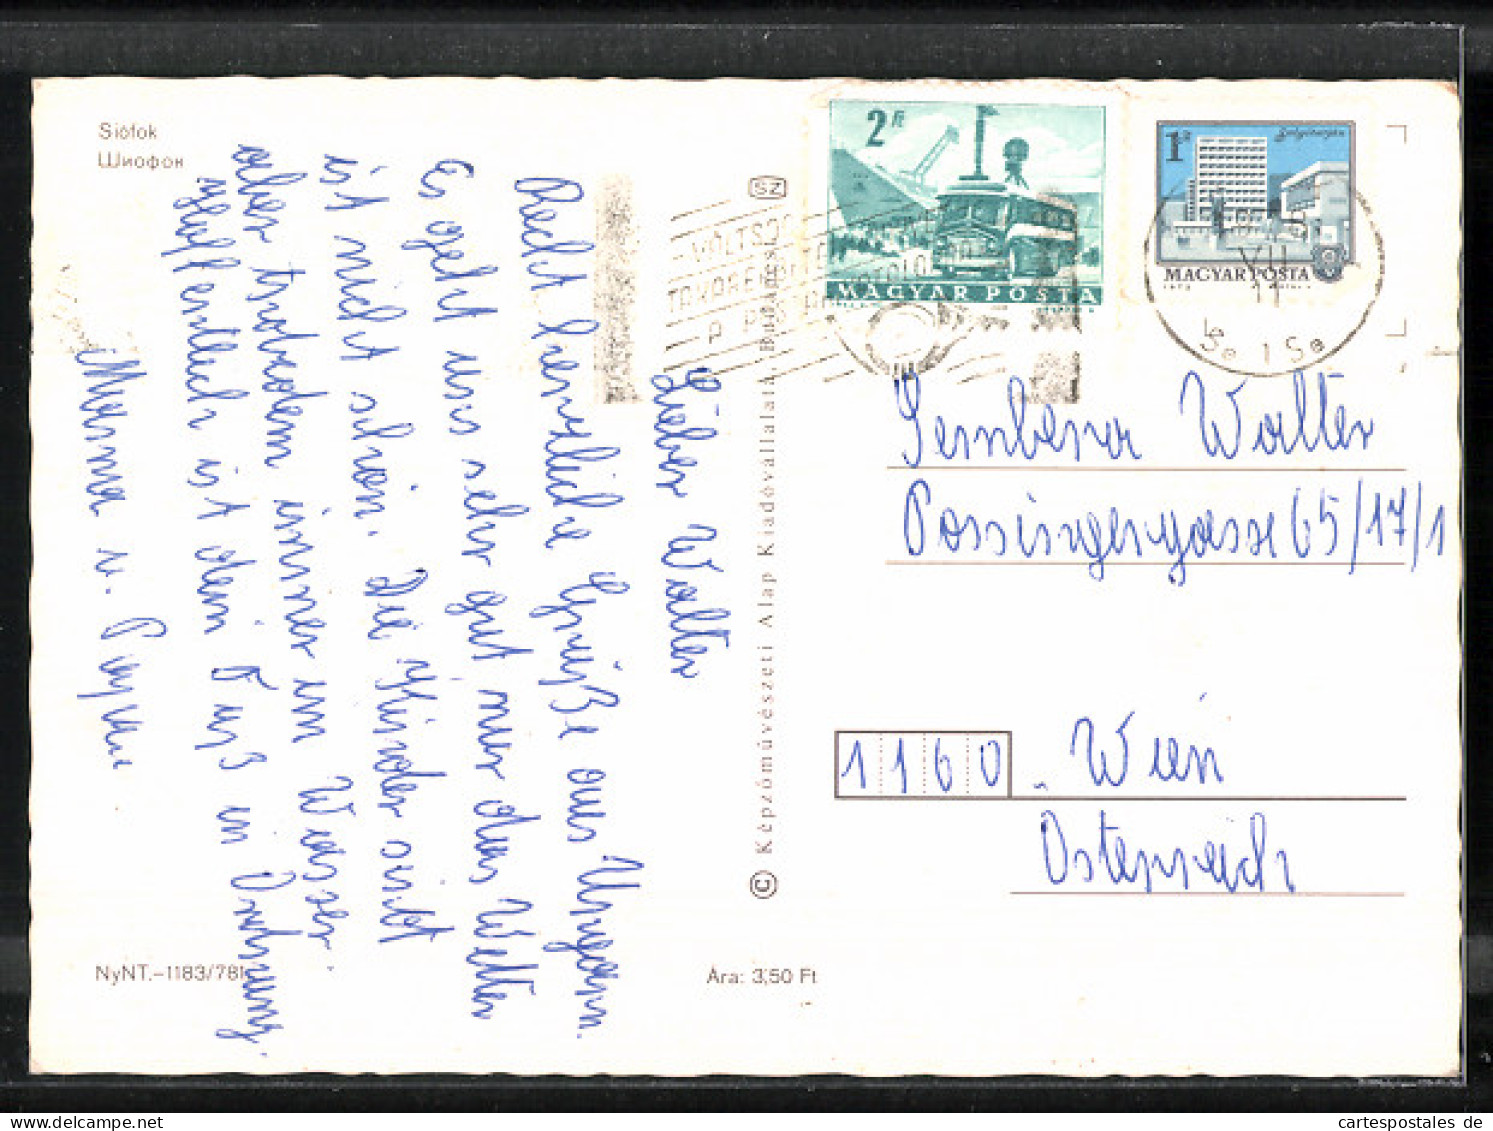 Siófok
Шиофок
Lieber Walter
Recht herzliche Grüße aus Ungarn.
Es geht uns sehr gut nur das Wetter
ist nicht schön. Die Kinder sind
aber trotzdem immer im Wasser.
Hoffentlich ist dein Fuß in Ordnung.
Mama u. Papa
NyNT.–1183/781
Ára: 3,50 Ft
© Képzőművészeti Alap Kiadóvállalata, Budapest
SZ
2 Ft
MAGYAR POSTA
1 Ft
Salgótarján
MAGYAR POSTA
1973
VÁLTSD
P
VII
Walter
Possingergasse 65/17/1
1160 Wien
Österreich